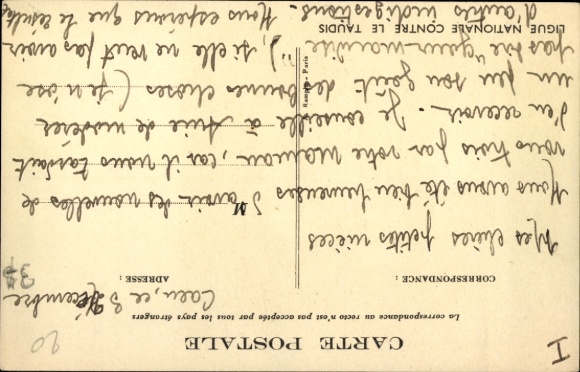 I
20
CARTE POSTALE
La correspondance au recto n'est pas acceptée par tous les pays étrangers
CORRESPONDANCE :
ADRESSE :
Caen, ce 3 Décembre
37
Mes chères petites nièces
Nous avons été bien heureuses d'avoir des nouvelles de
vous trois par votre maman, car il nous tardait
d'en recevoir. Je conseille à Anie de modérer
un peu son goût des bonnes choses (je n'ose
pas dire "gourmandise"), si elle ne veut pas avoir
d'autres indigestions. Nous espérons que le
M
Rampin - Paris
LIGUE NATIONALE CONTRE LE TAUDIS